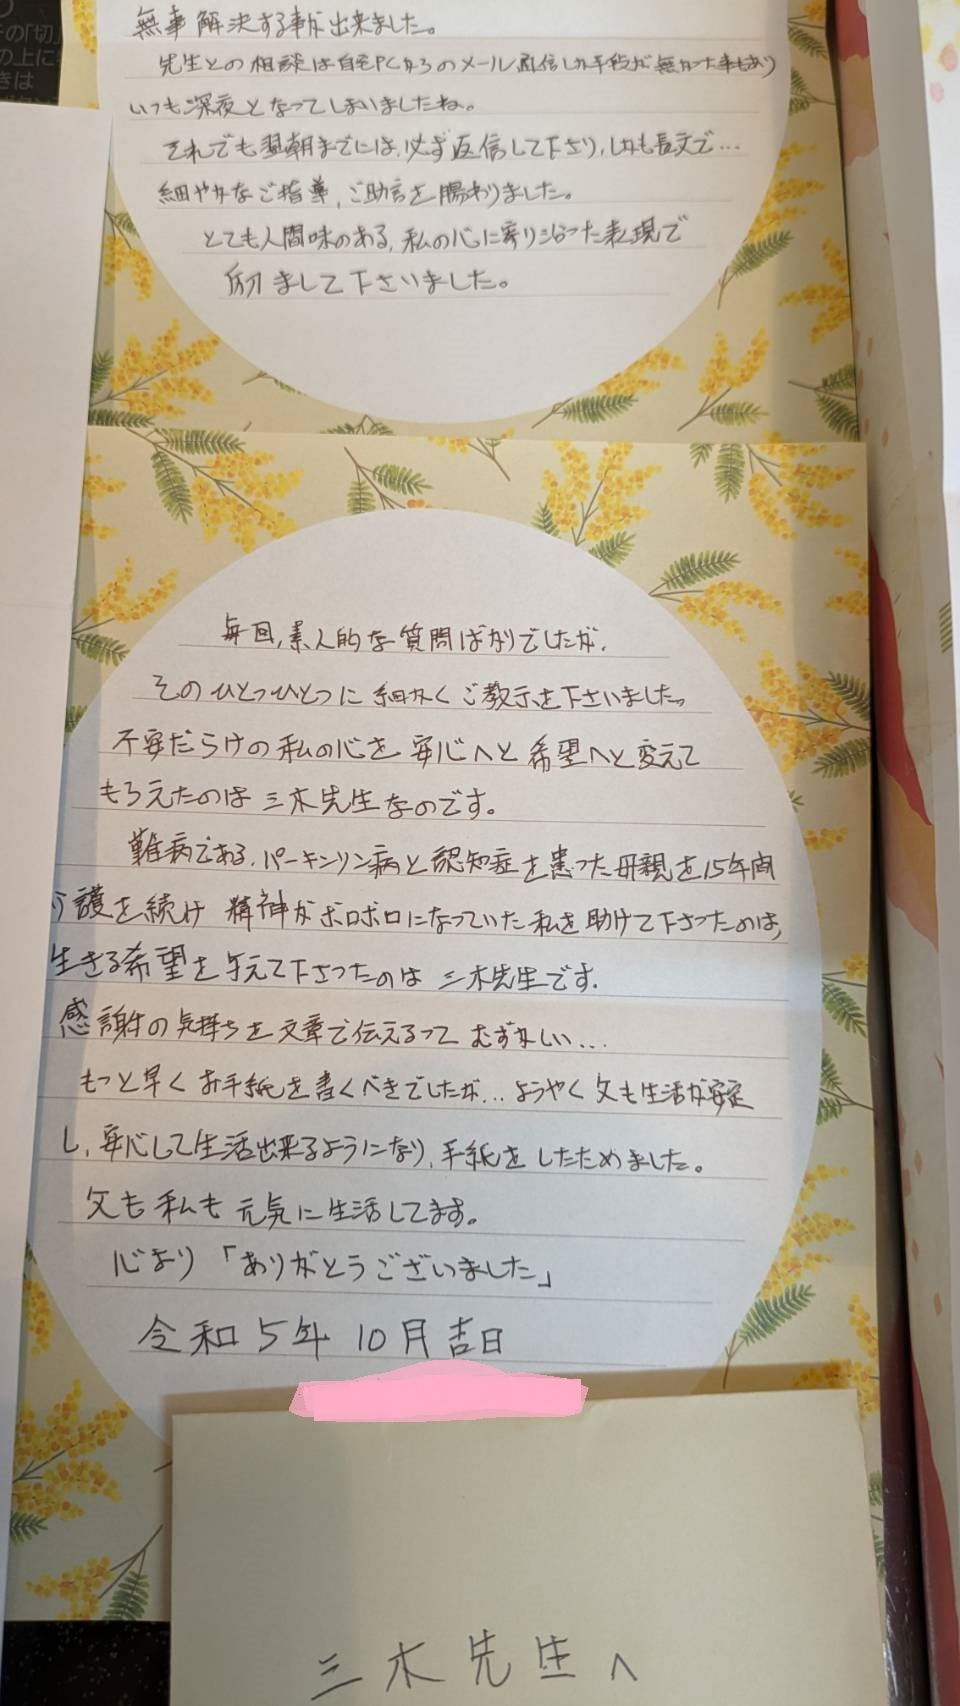 の「切」
の上に
きは
無事解決する事が出来ました。
先生との相談は自宅PCからのメール配信しか手段が無かった事もあり
いつも深夜となってしまいましたね。
それでも翌朝までには、必ず返信して下さり、しかも長文で…
細やかなご指導、ご助言を賜わりました。
とても人間味のある、私の心に寄り沿った表現で
励まして下さいました。
毎回、素人的な質問ばかりでしたが、
そのひとつひとつに細かくご教示を下さいました。
不安だらけの私の心を安心へと希望へと変えて
もらえたのは三木先生なのです。
難病である、パーキンソン病と認知症を患った母親を15年間
介護を続け精神がボロボロになっていた私を助けて下さったのは、
生きる希望を与えて下さったのは三木先生です。
感謝の気持ちを文章で伝えるってむずかしい…
もっと早くお手紙を書くべきでしたが…ようやく父も生活が安定
し、安心して生活出来るようになり、手紙をしたためました。
父も私も元気に生活してます。
心より「ありがとうございました」
令和5年10月吉日
三木先生へ